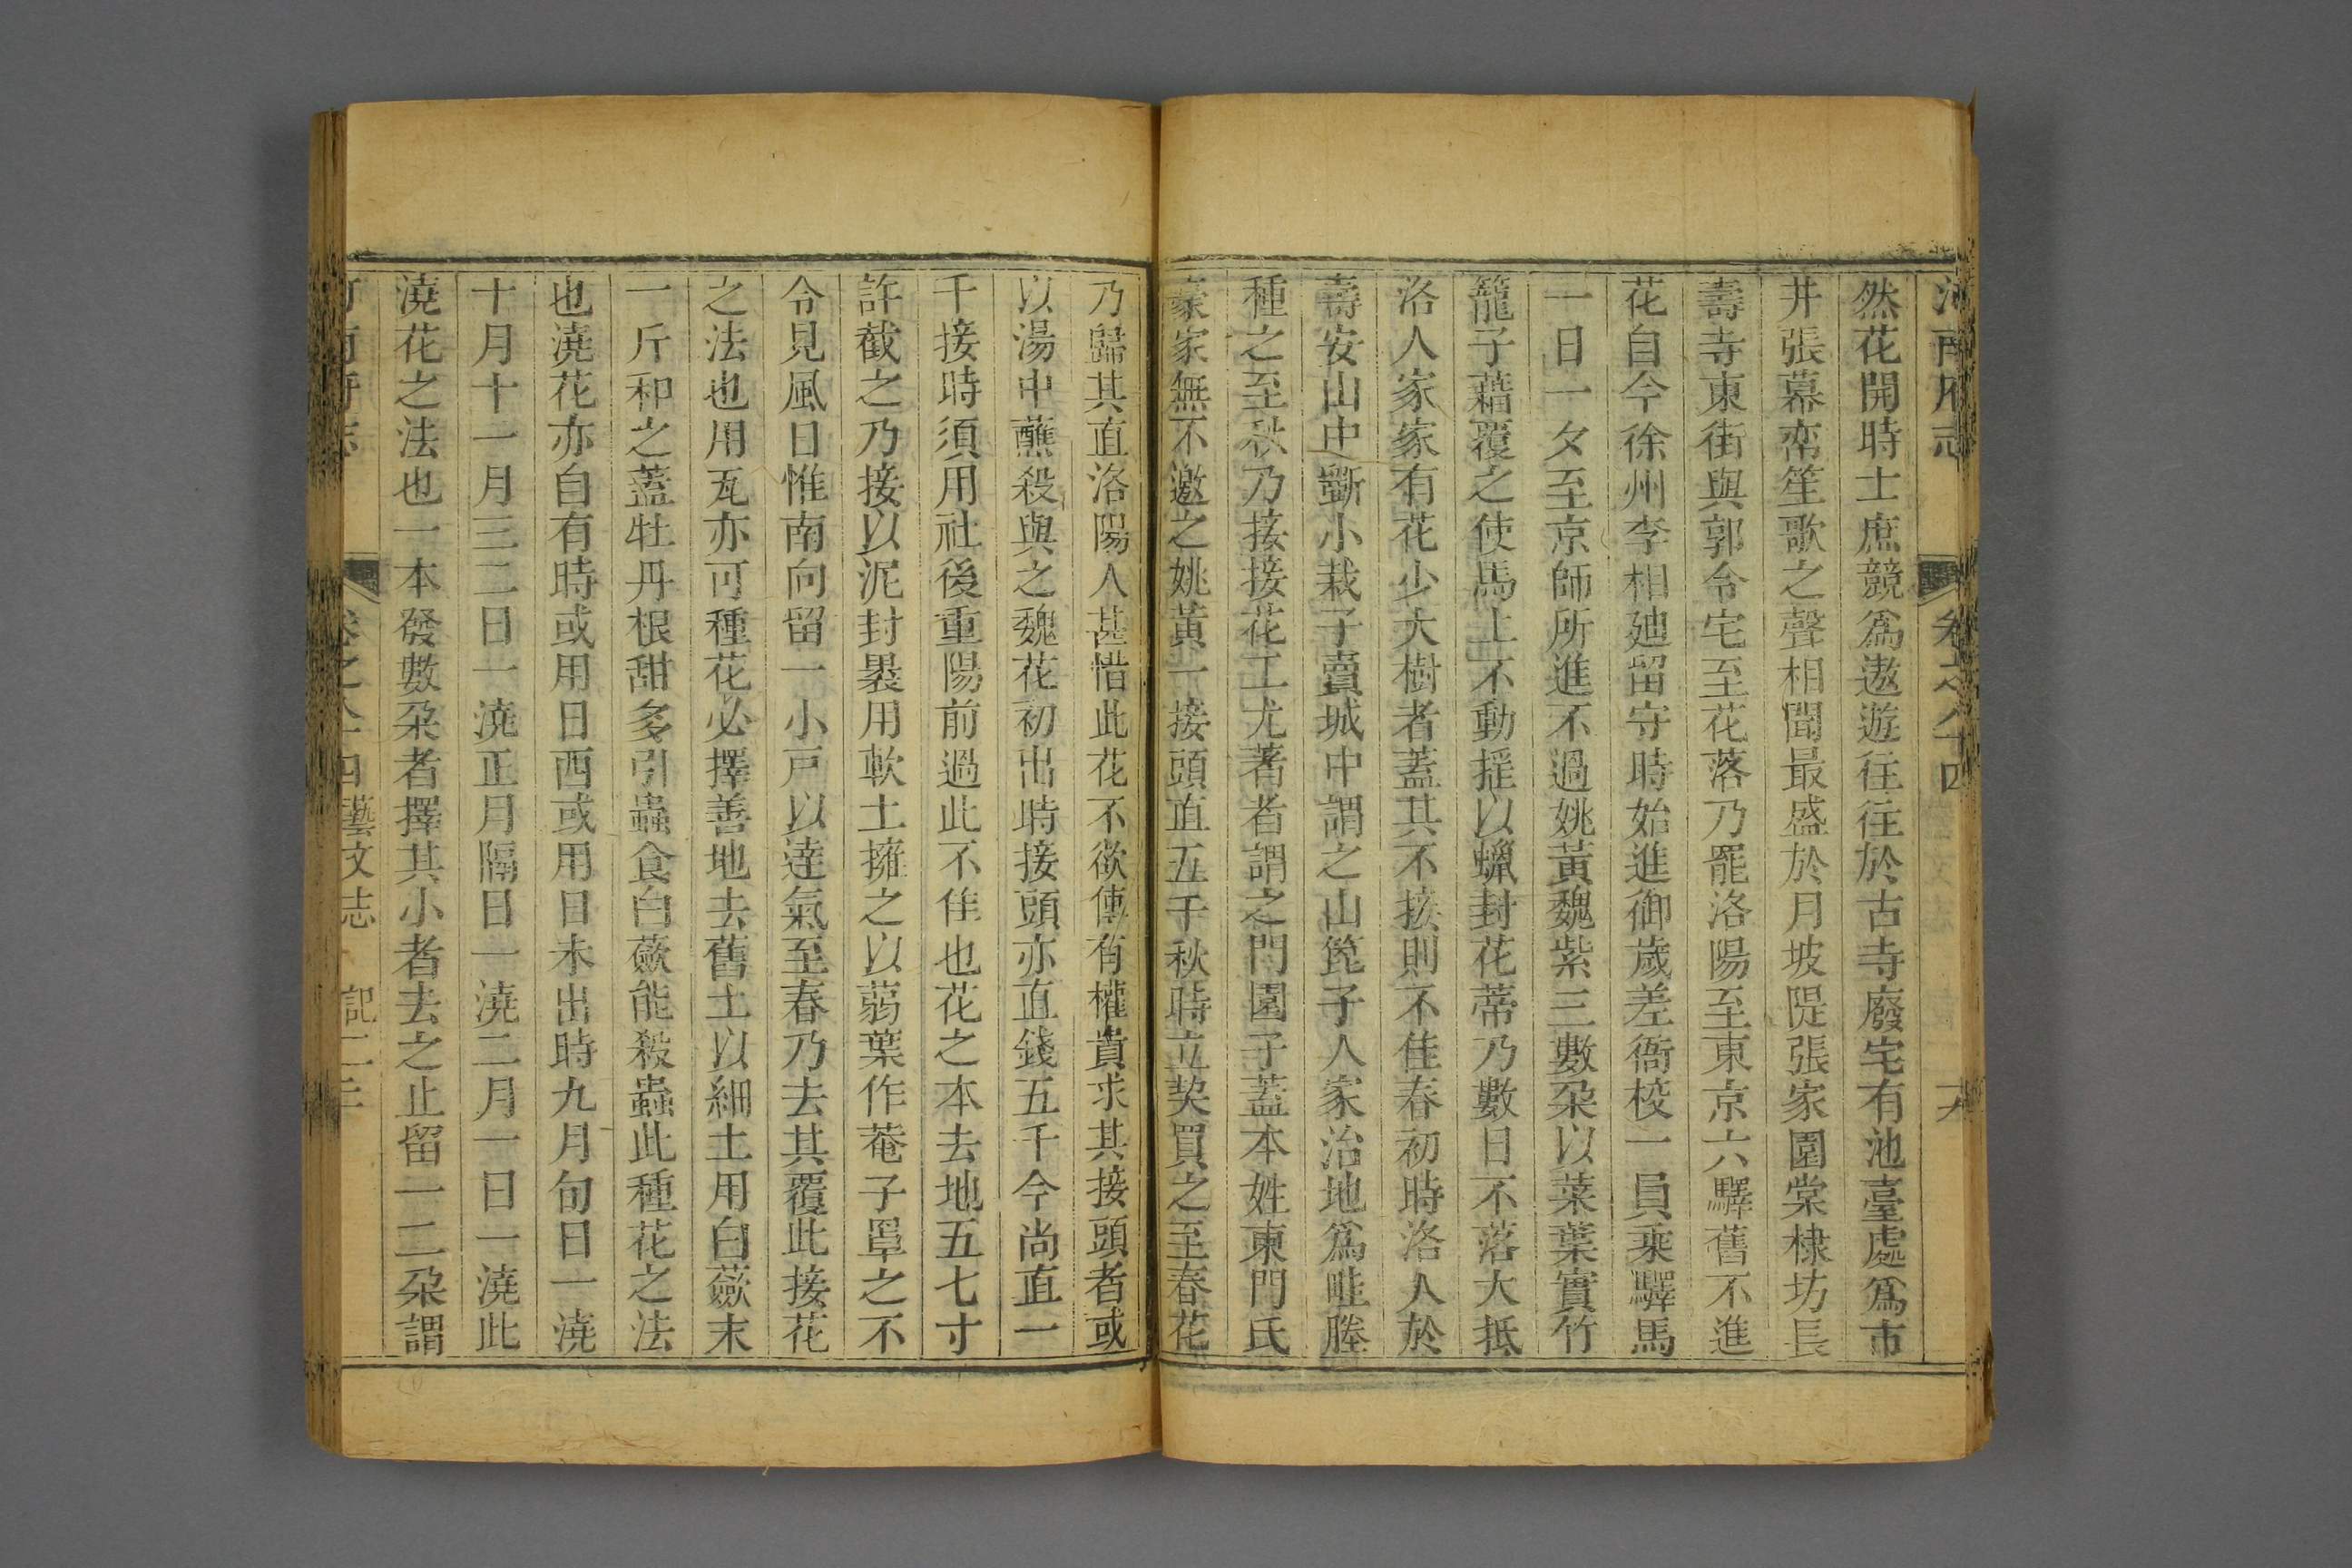 河南府志 卷之八十四
然花開時士庶競爲遨遊往往於古寺廢宅有池臺處爲市
井張幕帟笙歌之聲相聞最盛於月坡隄張家園棠棣坊長
壽寺東街與郭令宅至花落乃罷洛陽至東京六驛舊不進
花自今徐州李相廸留守時始進御歲差衙校一員乘驛馬
一日一夕至京師所進不過姚黃魏紫三數朵以菜葉實竹
籠子藉覆之使馬上不動揺以蠟封花蒂乃數日不落大抵
洛人家家有花少大樹者蓋其不接則不佳春初時洛人於
壽安山中斸小栽子賣城中謂之山箆子人家治地爲畦塍
種之至秋乃接接花工尤著者謂之門園子蓋本姓東門氏
豪家無不邀之姚黃一接頭直五千秋時立契買之至春花
乃歸其直洛陽人甚惜此花不欲傳有權貴求其接頭者或
以湯中蘸殺與之魏花初出時接頭亦直錢五千今尚直一
千接時須用社後重陽前過此不佳也花之本去地五七寸
許截之乃接以泥封裹用軟土擁之以蒻葉作菴子罩之不
令見風日惟南向留一小戸以達氣至春乃去其覆此接花
之法也用瓦亦可種花必擇善地去舊土以細土用白蘞末
一斤和之蓋牡丹根甜多引蟲食白蘞能殺蟲此種花之法
也澆花亦自有時或用日西或用日未出時九月旬日一澆
十月十一月三二日一澆正月隔日一澆二月一日一澆此
澆花之法也一本發數朵者擇其小者去之止留一二朵謂
河南府志 卷之八十四藝文志 記二